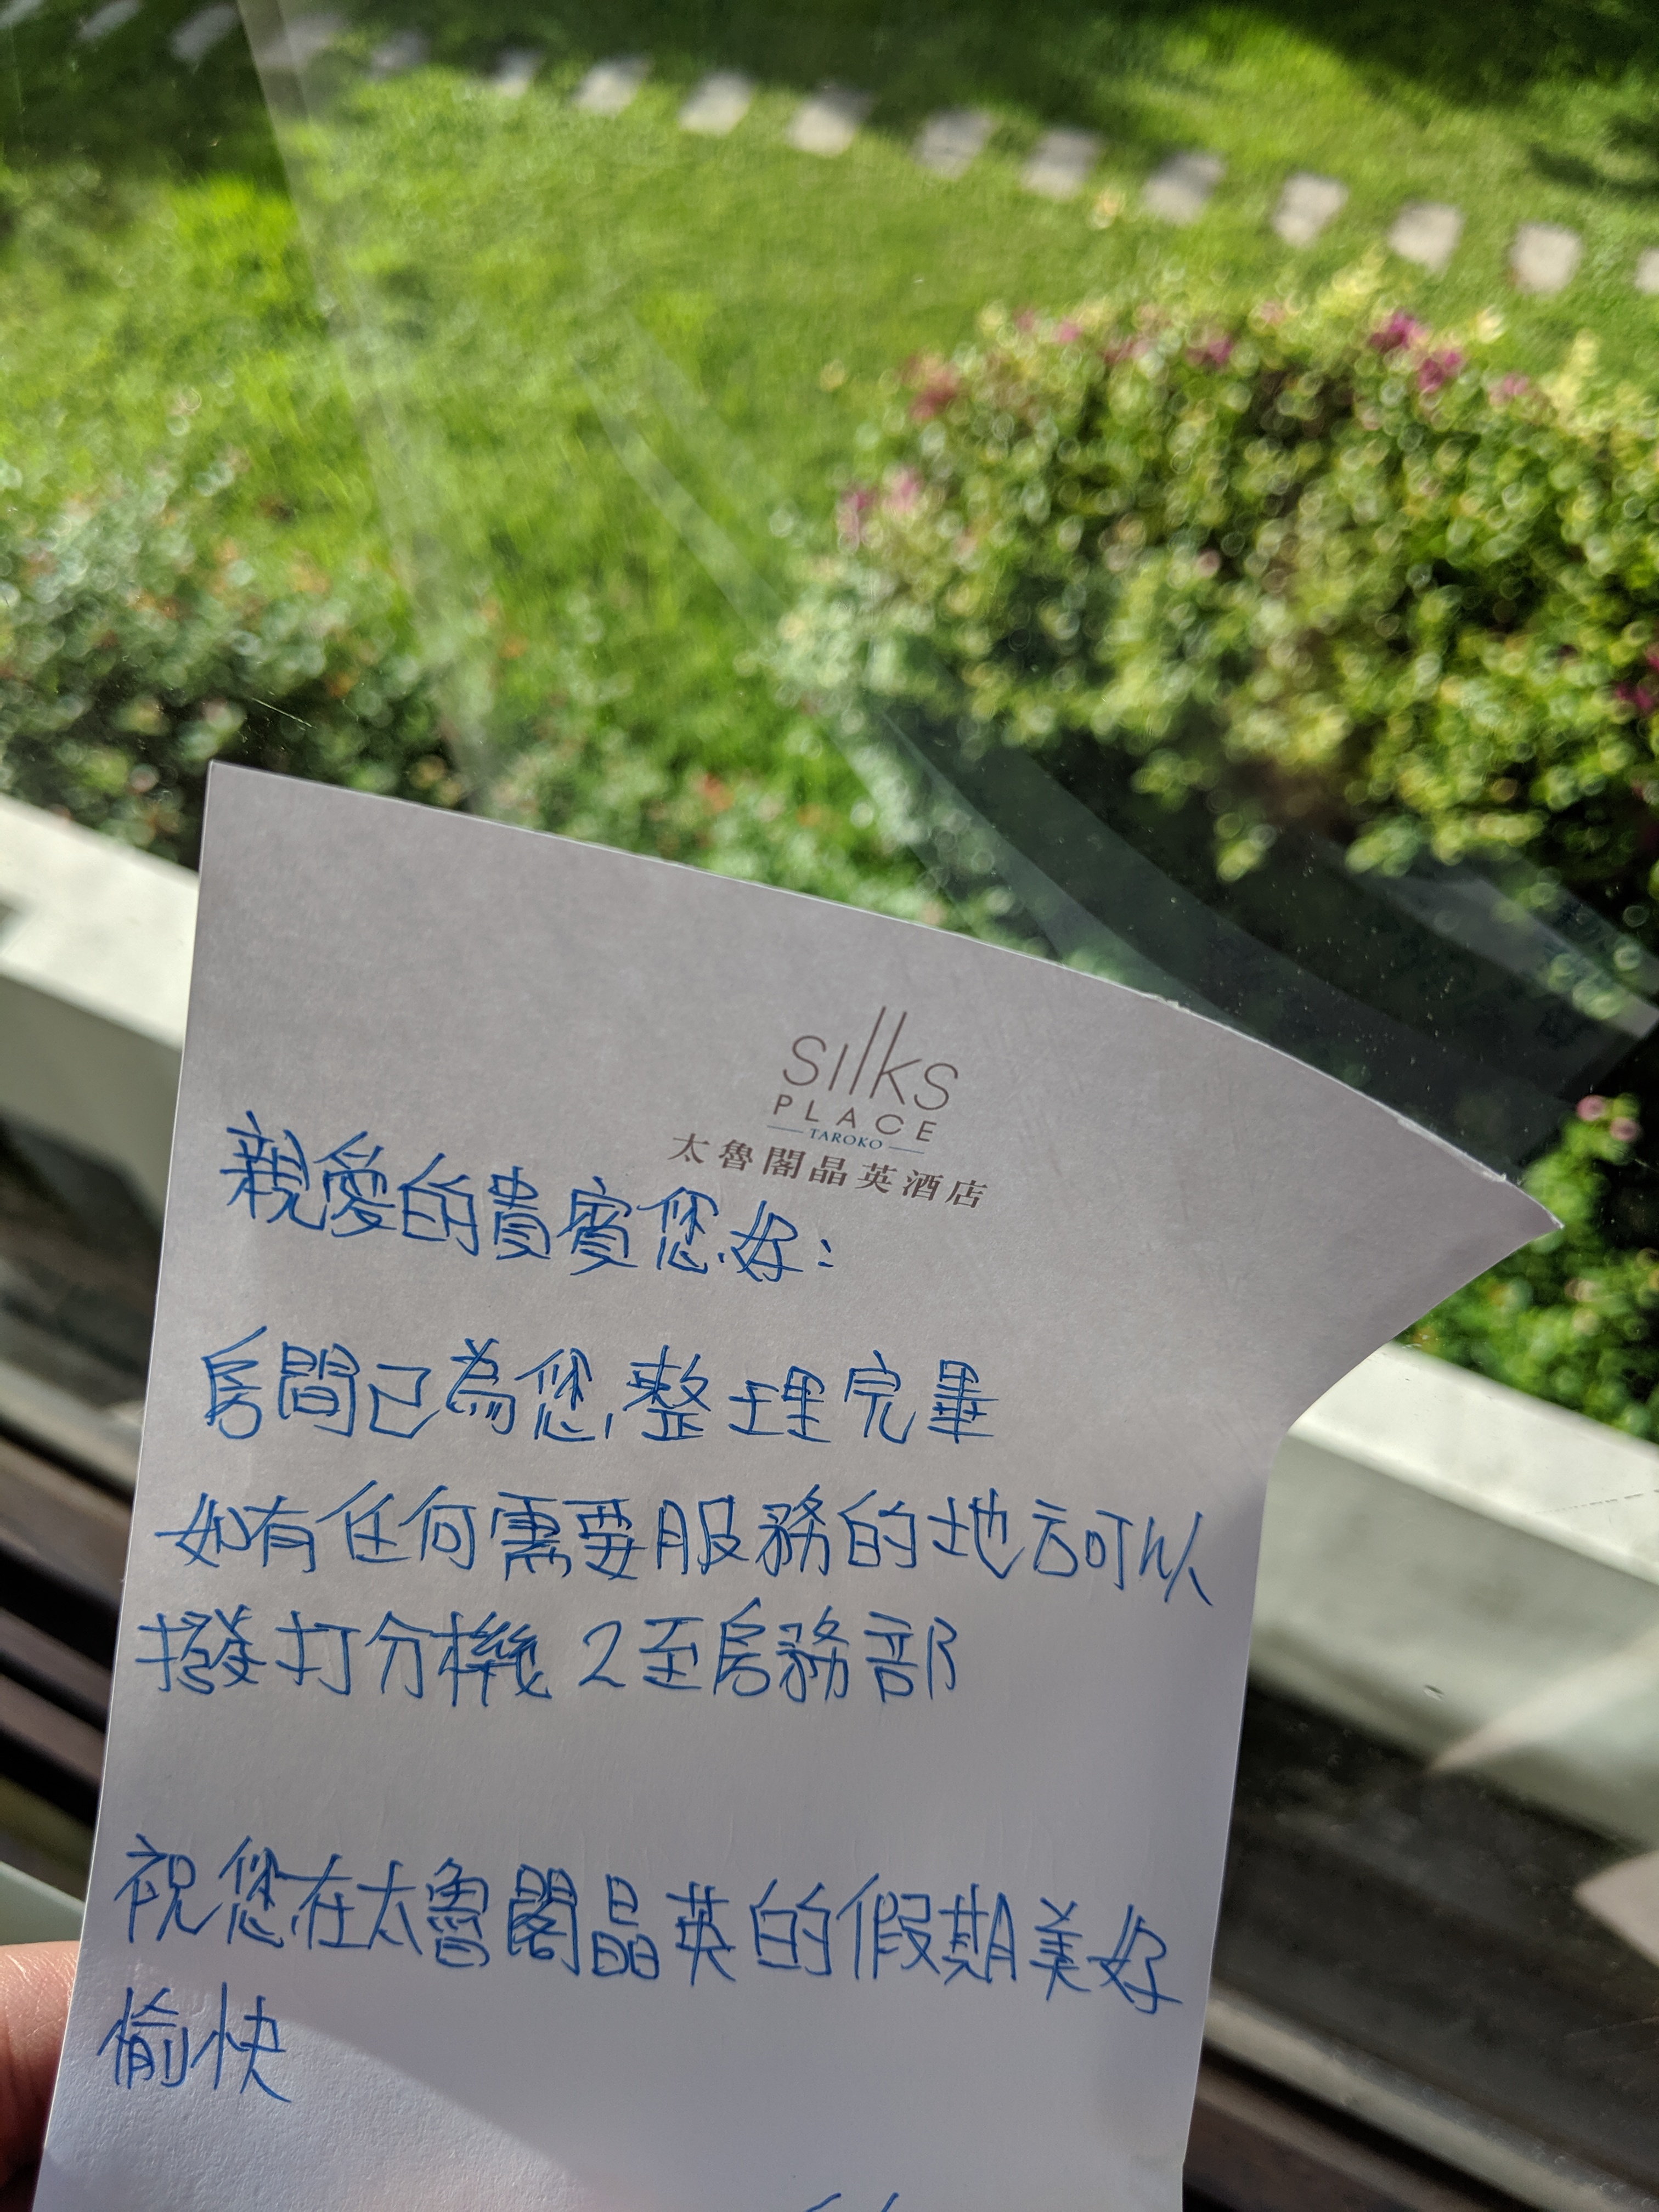 silks
PLACE
TAROKO
太魯閣晶英酒店
親愛的貴賓您好：
房間已為您整理完畢
如有任何需要服務的地方可以
撥打分機 2至房務部
祝您在太魯閣晶英的假期美好
愉快